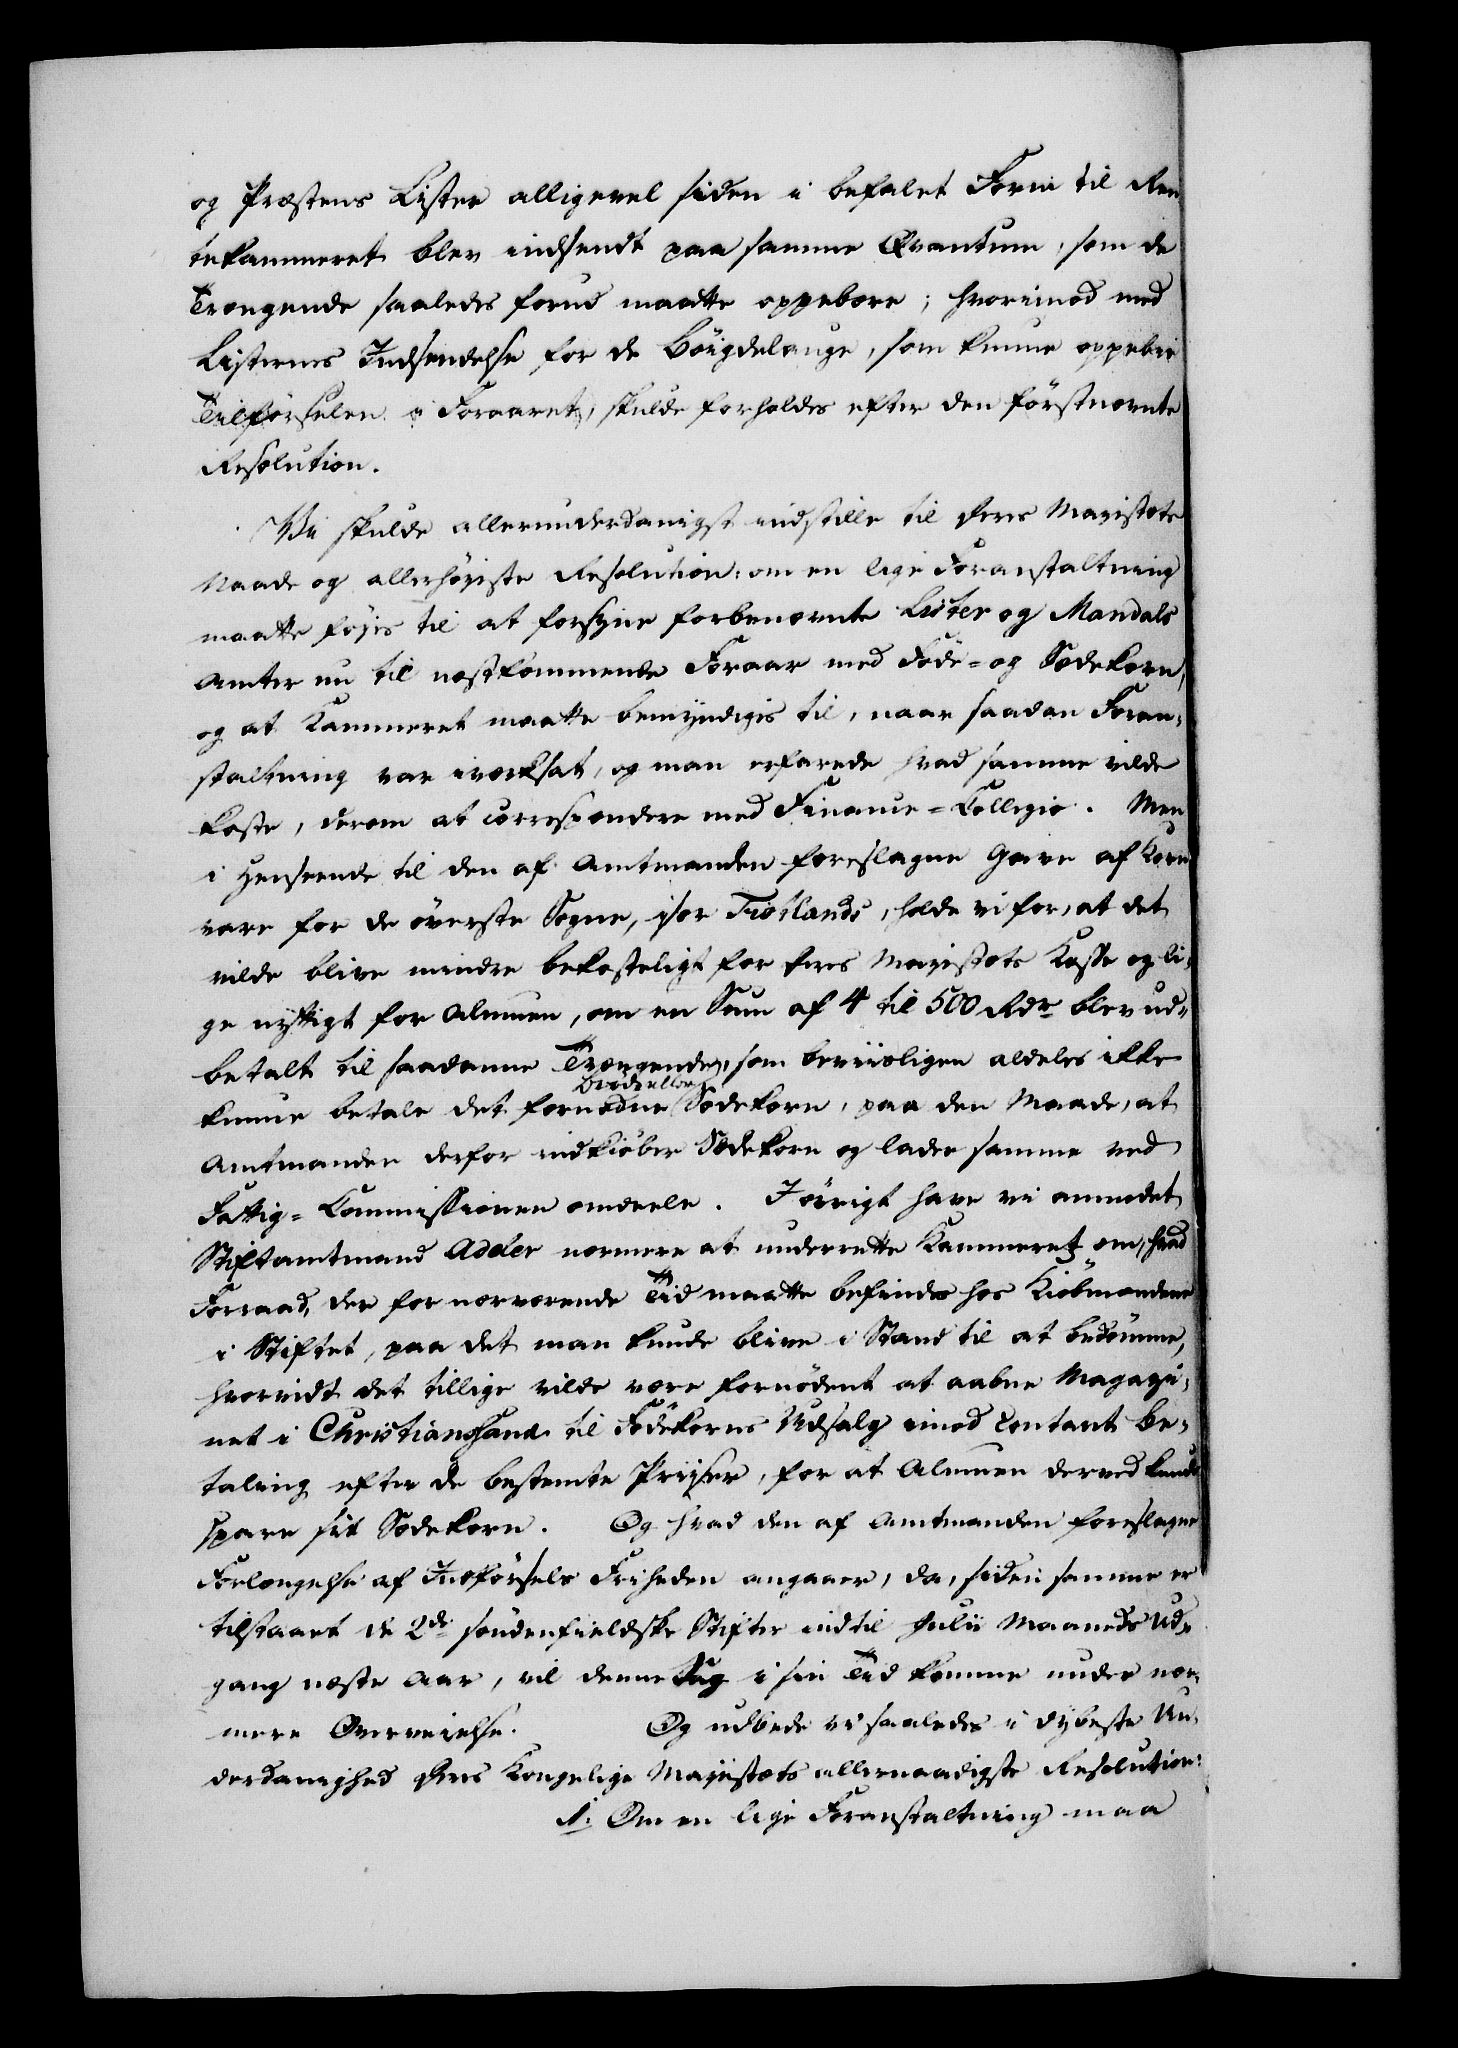 og Præstens Lister alligevel siden i befalet Form til Ren
tekammeret blev indsendt paa samme Qvantum, som de
Trængende saaledes forud maatte oppebære; hvorimod med
Listernes Indsendelse for de Böigdelauge, som kunne oppebie
Tilförselen i Foraaret, skulde forholdes efter den förstnævnte
Resolution.
Vi skulde allerunderdanigst indstille til Deres Majestæts
Naade og allerhöjeste Resolution: om en lige Foranstaltning
maatte föjes til at forsyne forbenævnte Lister og Mandals
Amter nu til næstkommende Foraar med Föde= og Sædekorn,
og at Kammeret maatte bemyndiges til, naar saadan Foran-
staltning var iværksat, og man erfarede hvad samme vilde
koste, derom at correspondere med Finance=Collegio. Men
i Henseende til den af Amtmanden foreslagne Gave af Korn
vare for de överste Sogne, især Fiotlands, holde vi for, at det
vilde blive mindre bekosteligt for Deres Majestæts Kasse og li-
ge nyttigt for Almuen, om en Sum af 4 til 500 Rdr blev ud-
betalt til saadanne Trængende, som beviisligen aldeles ikke
Bröd eller
kunne betale det fornödne Sædekorn, paa den Maade, at
Amtmanden derfor indkiöber Sædekorn og lader samme ved
Fattig=Commissionen omdeele. Iövrigt have vi anmodet
Stiftamtmand Adeler nærmere at underrette Kammeret om, hvad
Forraad, der for nærværende Tid maatte befindes hos Kiöbmændene
i Stiftet, paa det man kunde blive i Stand til at bedömme,
hvorvidt det tillige vilde være fornödent at aabne Magazi-
net i Christiansand til Födekorns Udsalg imod contant Be-
taling efter de bestemte Priser, for at Almuen derved kunde
spare sit Sædekorn. Og hvad den af Amtmanden foreslagne
Forlængelse af Indförsels Friheden angaaer, da, siden samme er
tilstaaet de 2de söndenfieldske Stifter indtil Julii Maaneds Ud-
gang næste Aar, vil denne Sag i sin Tid komme under nær-
mere Overveielse. Og udbede vi saaledes i dybeste Un-
derdanighed Deres Kongelige Majestæts allernaadigste Resolution:
1. Om en lige Foranstaltning maa